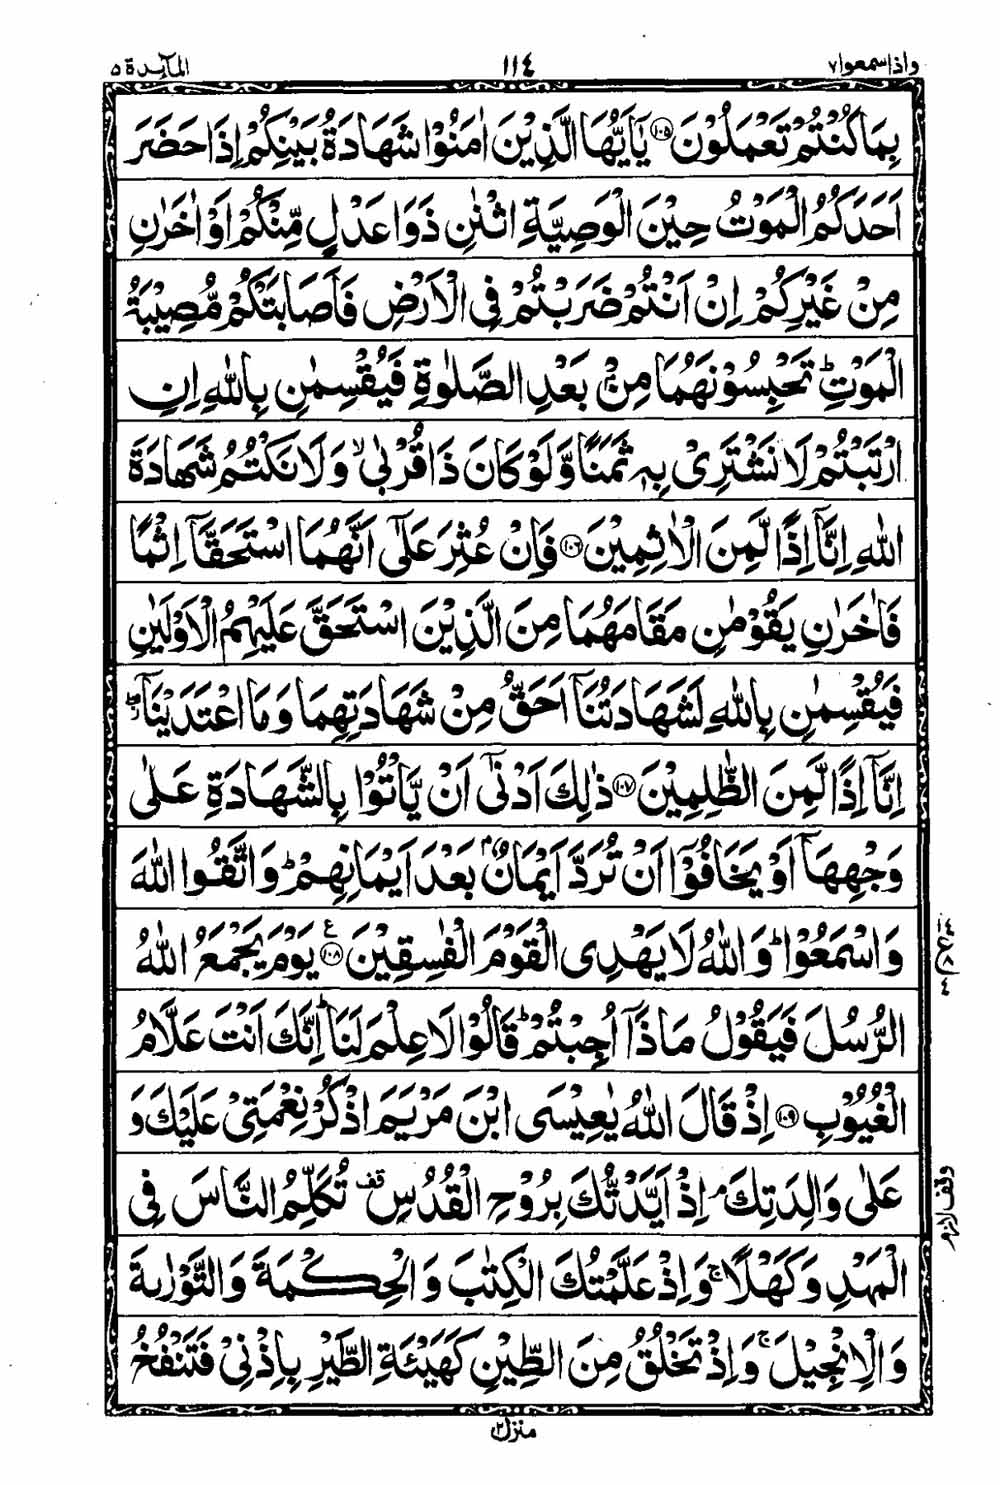 واذاسمعوا۷ ۱۱٤ المآئدة ۵
بِمَا كُنْتُمْ تَعْمَلُوْنَ ۝۱۰۵ يٰۤاَيُّهَا الَّذِيْنَ اٰمَنُوْا شَهَادَةُ بَيْنِكُمْ اِذَا حَضَرَ
اَحَدَكُمُ الْمَوْتُ حِيْنَ الْوَصِيَّةِ اثْنٰنِ ذَوَا عَدْلٍ مِّنْكُمْ اَوْ اٰخَرٰنِ
مِنْ غَيْرِكُمْ اِنْ اَنْتُمْ ضَرَبْتُمْ فِي الْاَرْضِ فَاَصَابَتْكُمْ مُّصِيْبَةُ
الْمَوْتِ ؕ تَحْبِسُوْنَهُمَا مِنْۢ بَعْدِ الصَّلٰوةِ فَيُقْسِمٰنِ بِاللّٰهِ اِنِ
ارْتَبْتُمْ لَا نَشْتَرِيْ بِهٖ ثَمَنًا وَّلَوْ كَانَ ذَا قُرْبٰى ۙ وَلَا نَكْتُمُ شَهَادَةَ
اللّٰهِ اِنَّاۤ اِذًا لَّمِنَ الْاٰثِمِيْنَ ۝۱۰۶ فَاِنْ عُثِرَ عَلٰۤى اَنَّهُمَا اسْتَحَقَّاۤ اِثْمًا
فَاٰخَرٰنِ يَقُوْمٰنِ مَقَامَهُمَا مِنَ الَّذِيْنَ اسْتَحَقَّ عَلَيْهِمُ الْاَوْلَيٰنِ
فَيُقْسِمٰنِ بِاللّٰهِ لَشَهَادَتُنَاۤ اَحَقُّ مِنْ شَهَادَتِهِمَا وَمَا اعْتَدَيْنَاۤ ۖ
اِنَّاۤ اِذًا لَّمِنَ الظّٰلِمِيْنَ ۝۱۰۷ ذٰلِكَ اَدْنٰۤى اَنْ يَّاْتُوْا بِالشَّهَادَةِ عَلٰى
وَجْهِهَاۤ اَوْ يَخَافُوْۤا اَنْ تُرَدَّ اَيْمَانٌۢ بَعْدَ اَيْمَانِهِمْ ؕ وَاتَّقُوا اللّٰهَ
وَاسْمَعُوْا ؕ وَاللّٰهُ لَا يَهْدِى الْقَوْمَ الْفٰسِقِيْنَ ۝۱۰۸ ع يَوْمَ يَجْمَعُ اللّٰهُ
الرُّسُلَ فَيَقُوْلُ مَاذَاۤ اُجِبْتُمْ ؕ قَالُوْا لَا عِلْمَ لَنَا ؕ اِنَّكَ اَنْتَ عَلَّامُ
الْغُيُوْبِ ۝۱۰۹ اِذْ قَالَ اللّٰهُ يٰعِيْسَى ابْنَ مَرْيَمَ اذْكُرْ نِعْمَتِيْ عَلَيْكَ وَ
عَلٰى وَالِدَتِكَ ۘ اِذْ اَيَّدْتُّكَ بِرُوْحِ الْقُدُسِ قف تُكَلِّمُ النَّاسَ فِى
الْمَهْدِ وَكَهْلًا ۚ وَاِذْ عَلَّمْتُكَ الْكِتٰبَ وَالْحِكْمَةَ وَالتَّوْرٰىةَ
وَالْاِنْجِيْلَ ۚ وَاِذْ تَخْلُقُ مِنَ الطِّيْنِ كَهَيْئَةِ الطَّيْرِ بِاِذْنِيْ فَتَنْفُخُ
ع
وقف لازم
منزل۲